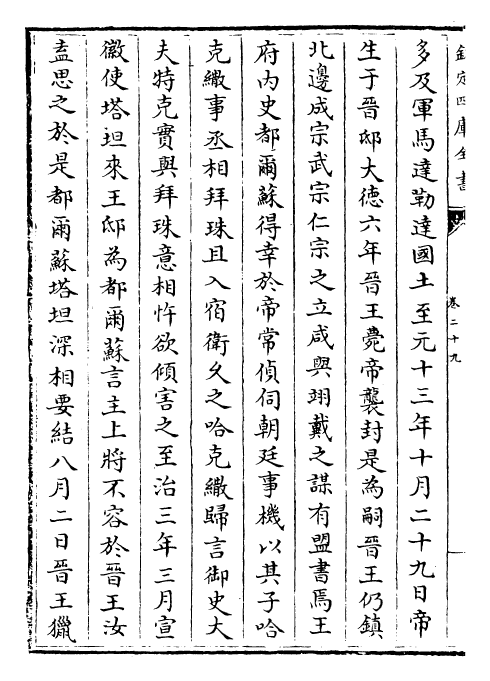 欽定四庫全書
卷二十九
多及軍馬達勒達國土至元十三年十月二十九日帝
生于晉邸大德六年晉王薨帝襲封是為嗣晉王仍鎮
北邊成宗武宗仁宗之立咸與翊戴之謀有盟書焉王
府内史都爾蘇得幸於帝常偵伺朝廷事機以其子哈
克繖事丞相拜珠且入宿衛久之哈克繖歸言御史大
夫特克實與拜珠意相忤欲傾害之至治三年三月宣
徽使塔坦來王邸為都爾蘇言主上將不容於晉王汝
盍思之於是都爾蘇塔坦深相要結八月二日晉王獵